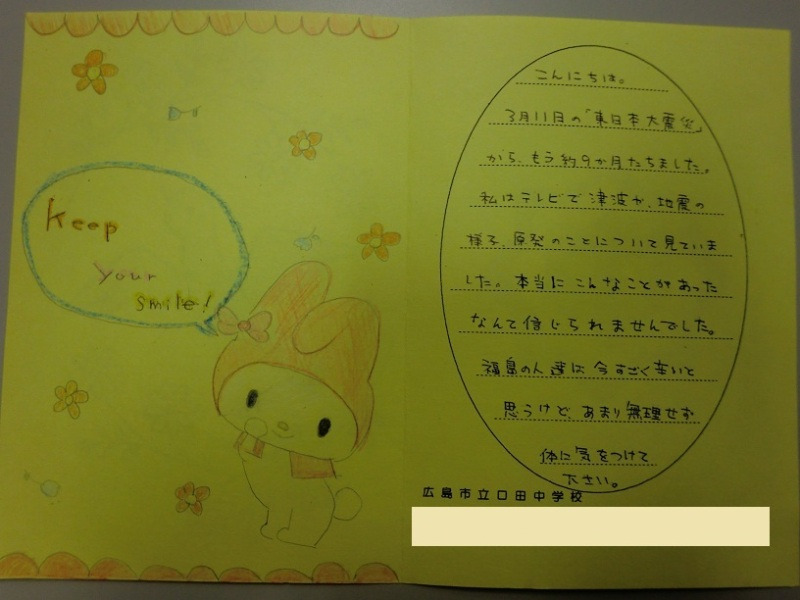 Keep
your
smile!
こんにちは。
3月11日の「東日本大震災」
から、もう約9か月たちました。
私はテレビで津波や、地震の
様子、原発のことについて見ていま
した。本当にこんなことがあった
なんて信じられませんでした。
福島の人達は今すごく辛いと
思うけど、あまり無理せず
体に気をつけて
下さい。
広島市立口田中学校